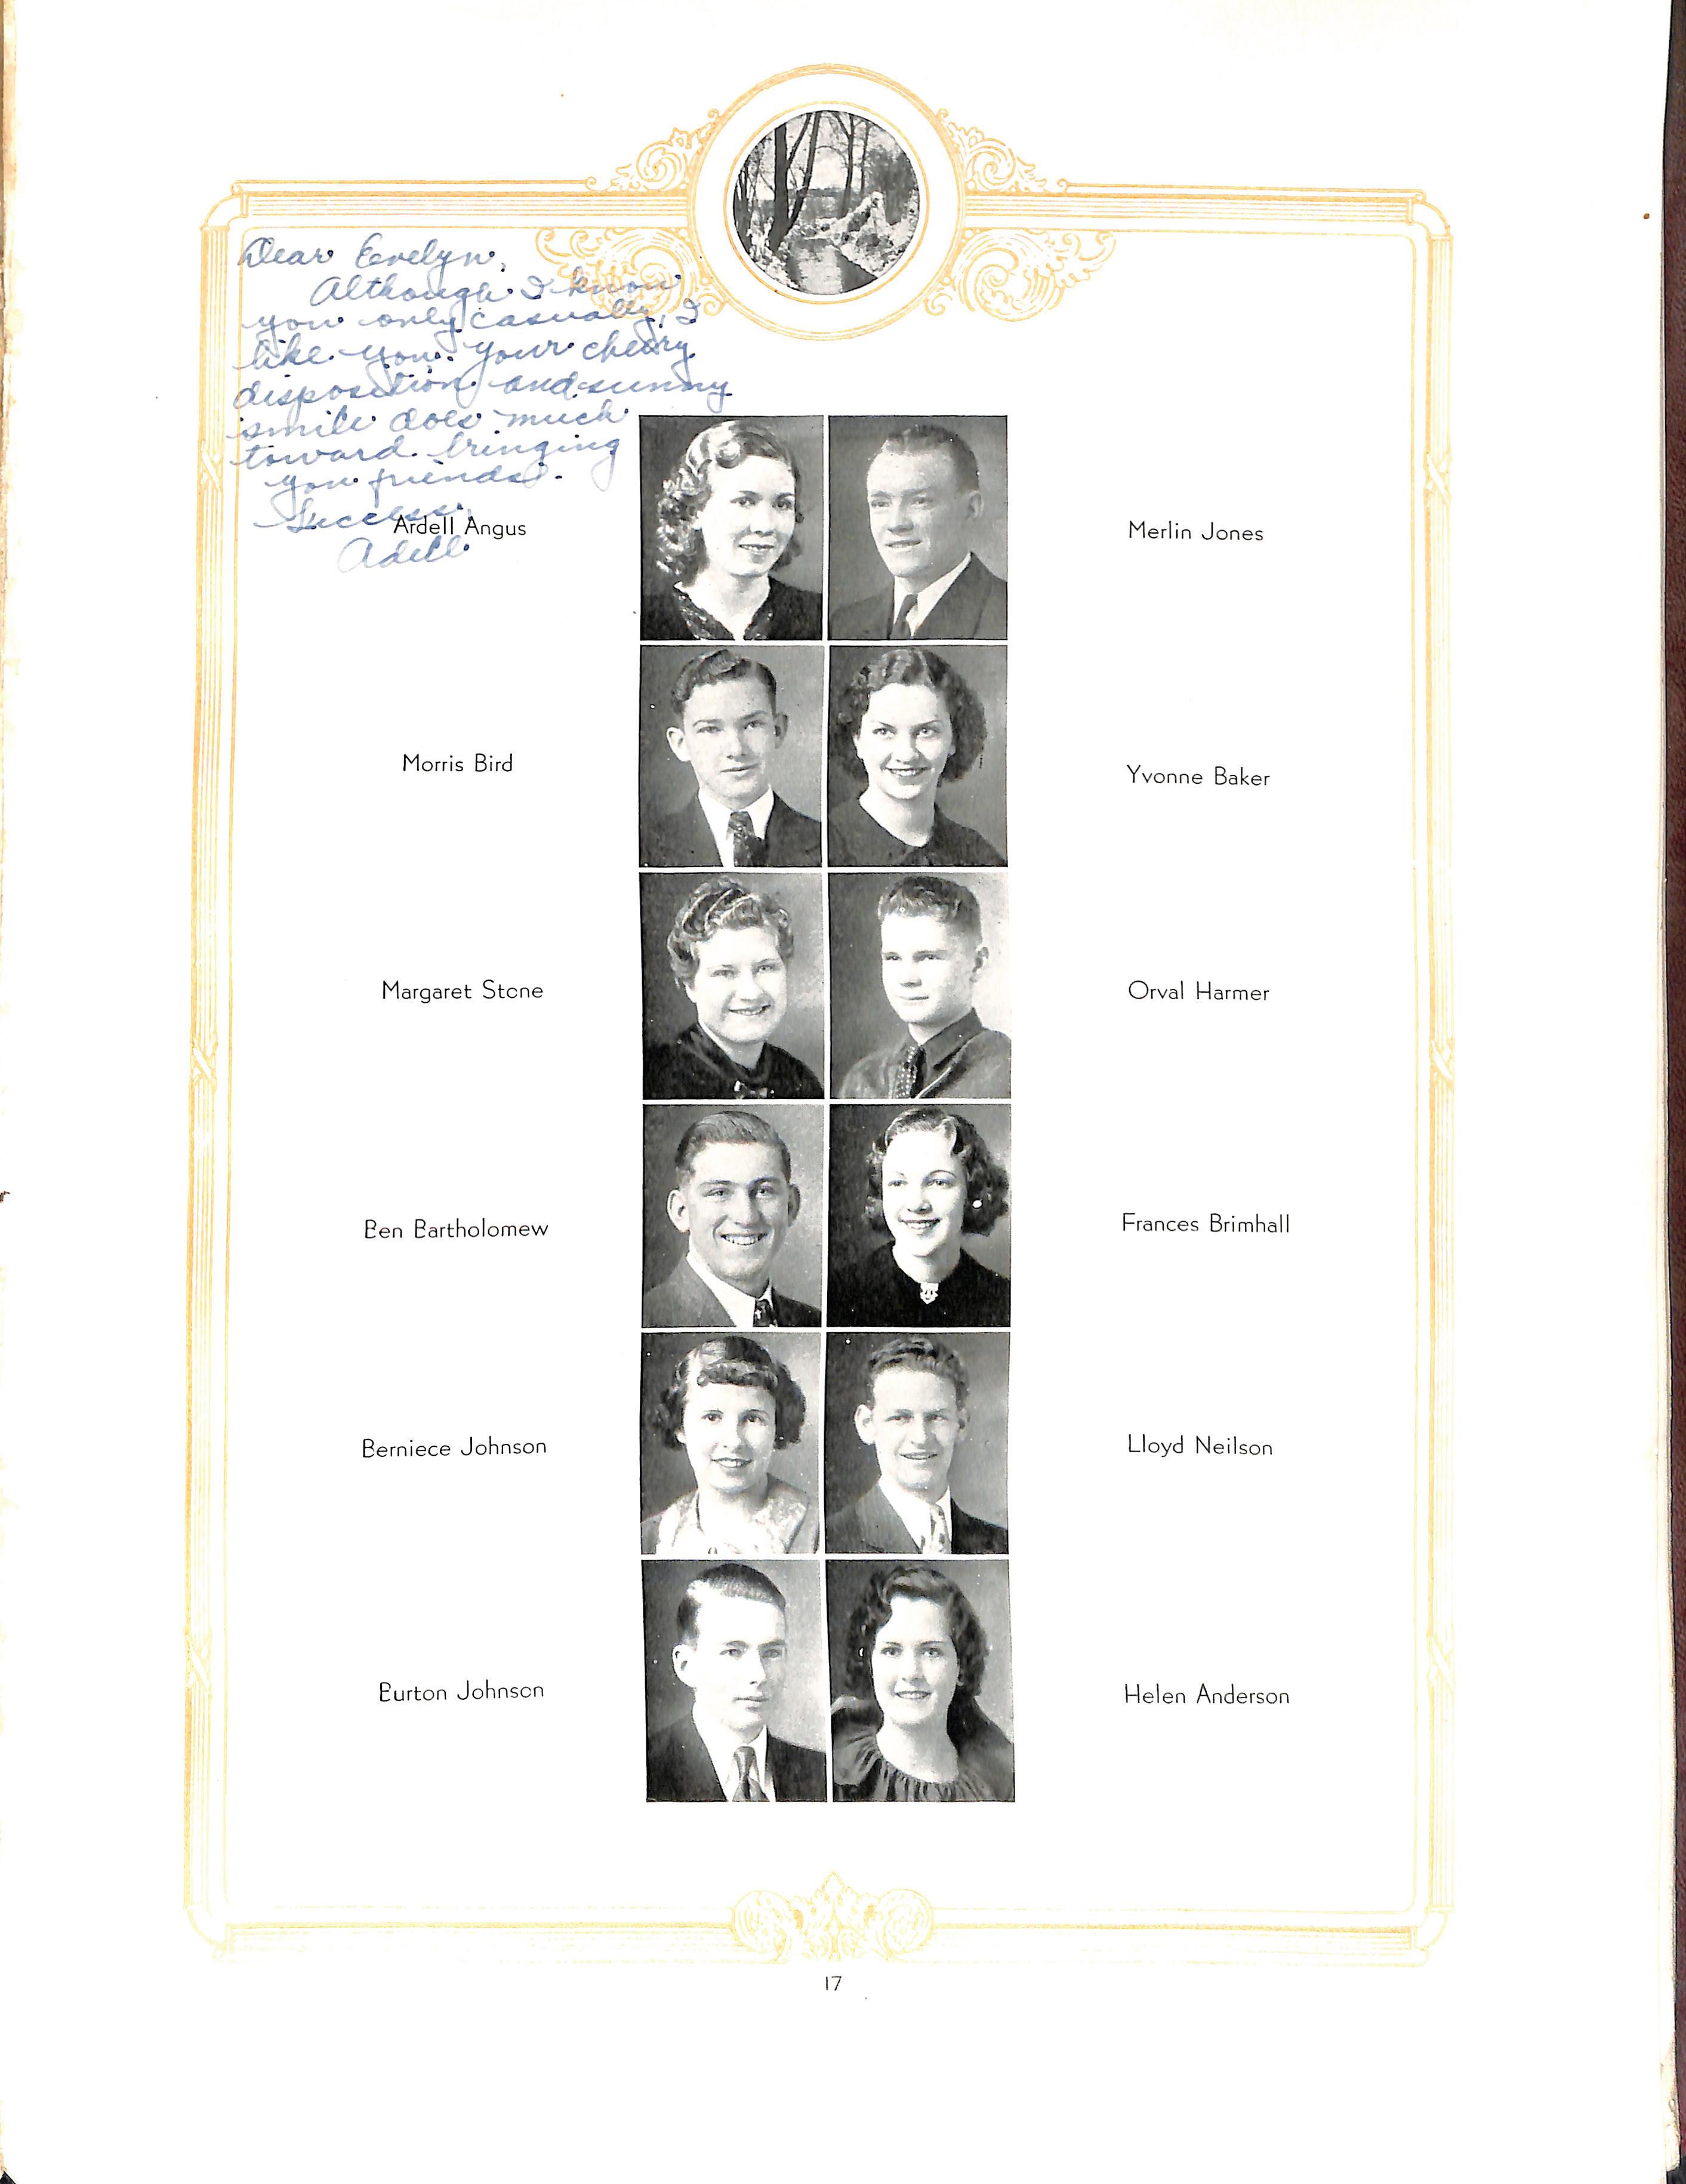 Dear Evelyn,
Although I know
you only casually, I
like you. Your cheery
disposition and sunny
smile does much
toward bringing
you friends.
Success,
Adell
Ardell Angus
Merlin Jones
Morris Bird
Yvonne Baker
Margaret Stone
Orval Harmer
Ben Bartholomew
Frances Brimhall
Berniece Johnson
Lloyd Neilson
Burton Johnson
Helen Anderson
17